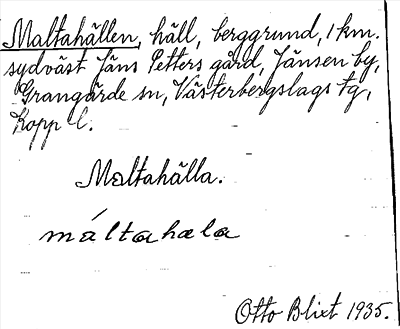 Maltahällen, häll, berggrund, 1 km.
sydväst Jäns Petters gård, Jänsen by,
Grangärde sn, Västerbergslags tg,
Kopp l.
Maltahälla.
máltahæla
Otto Blixt 1935.